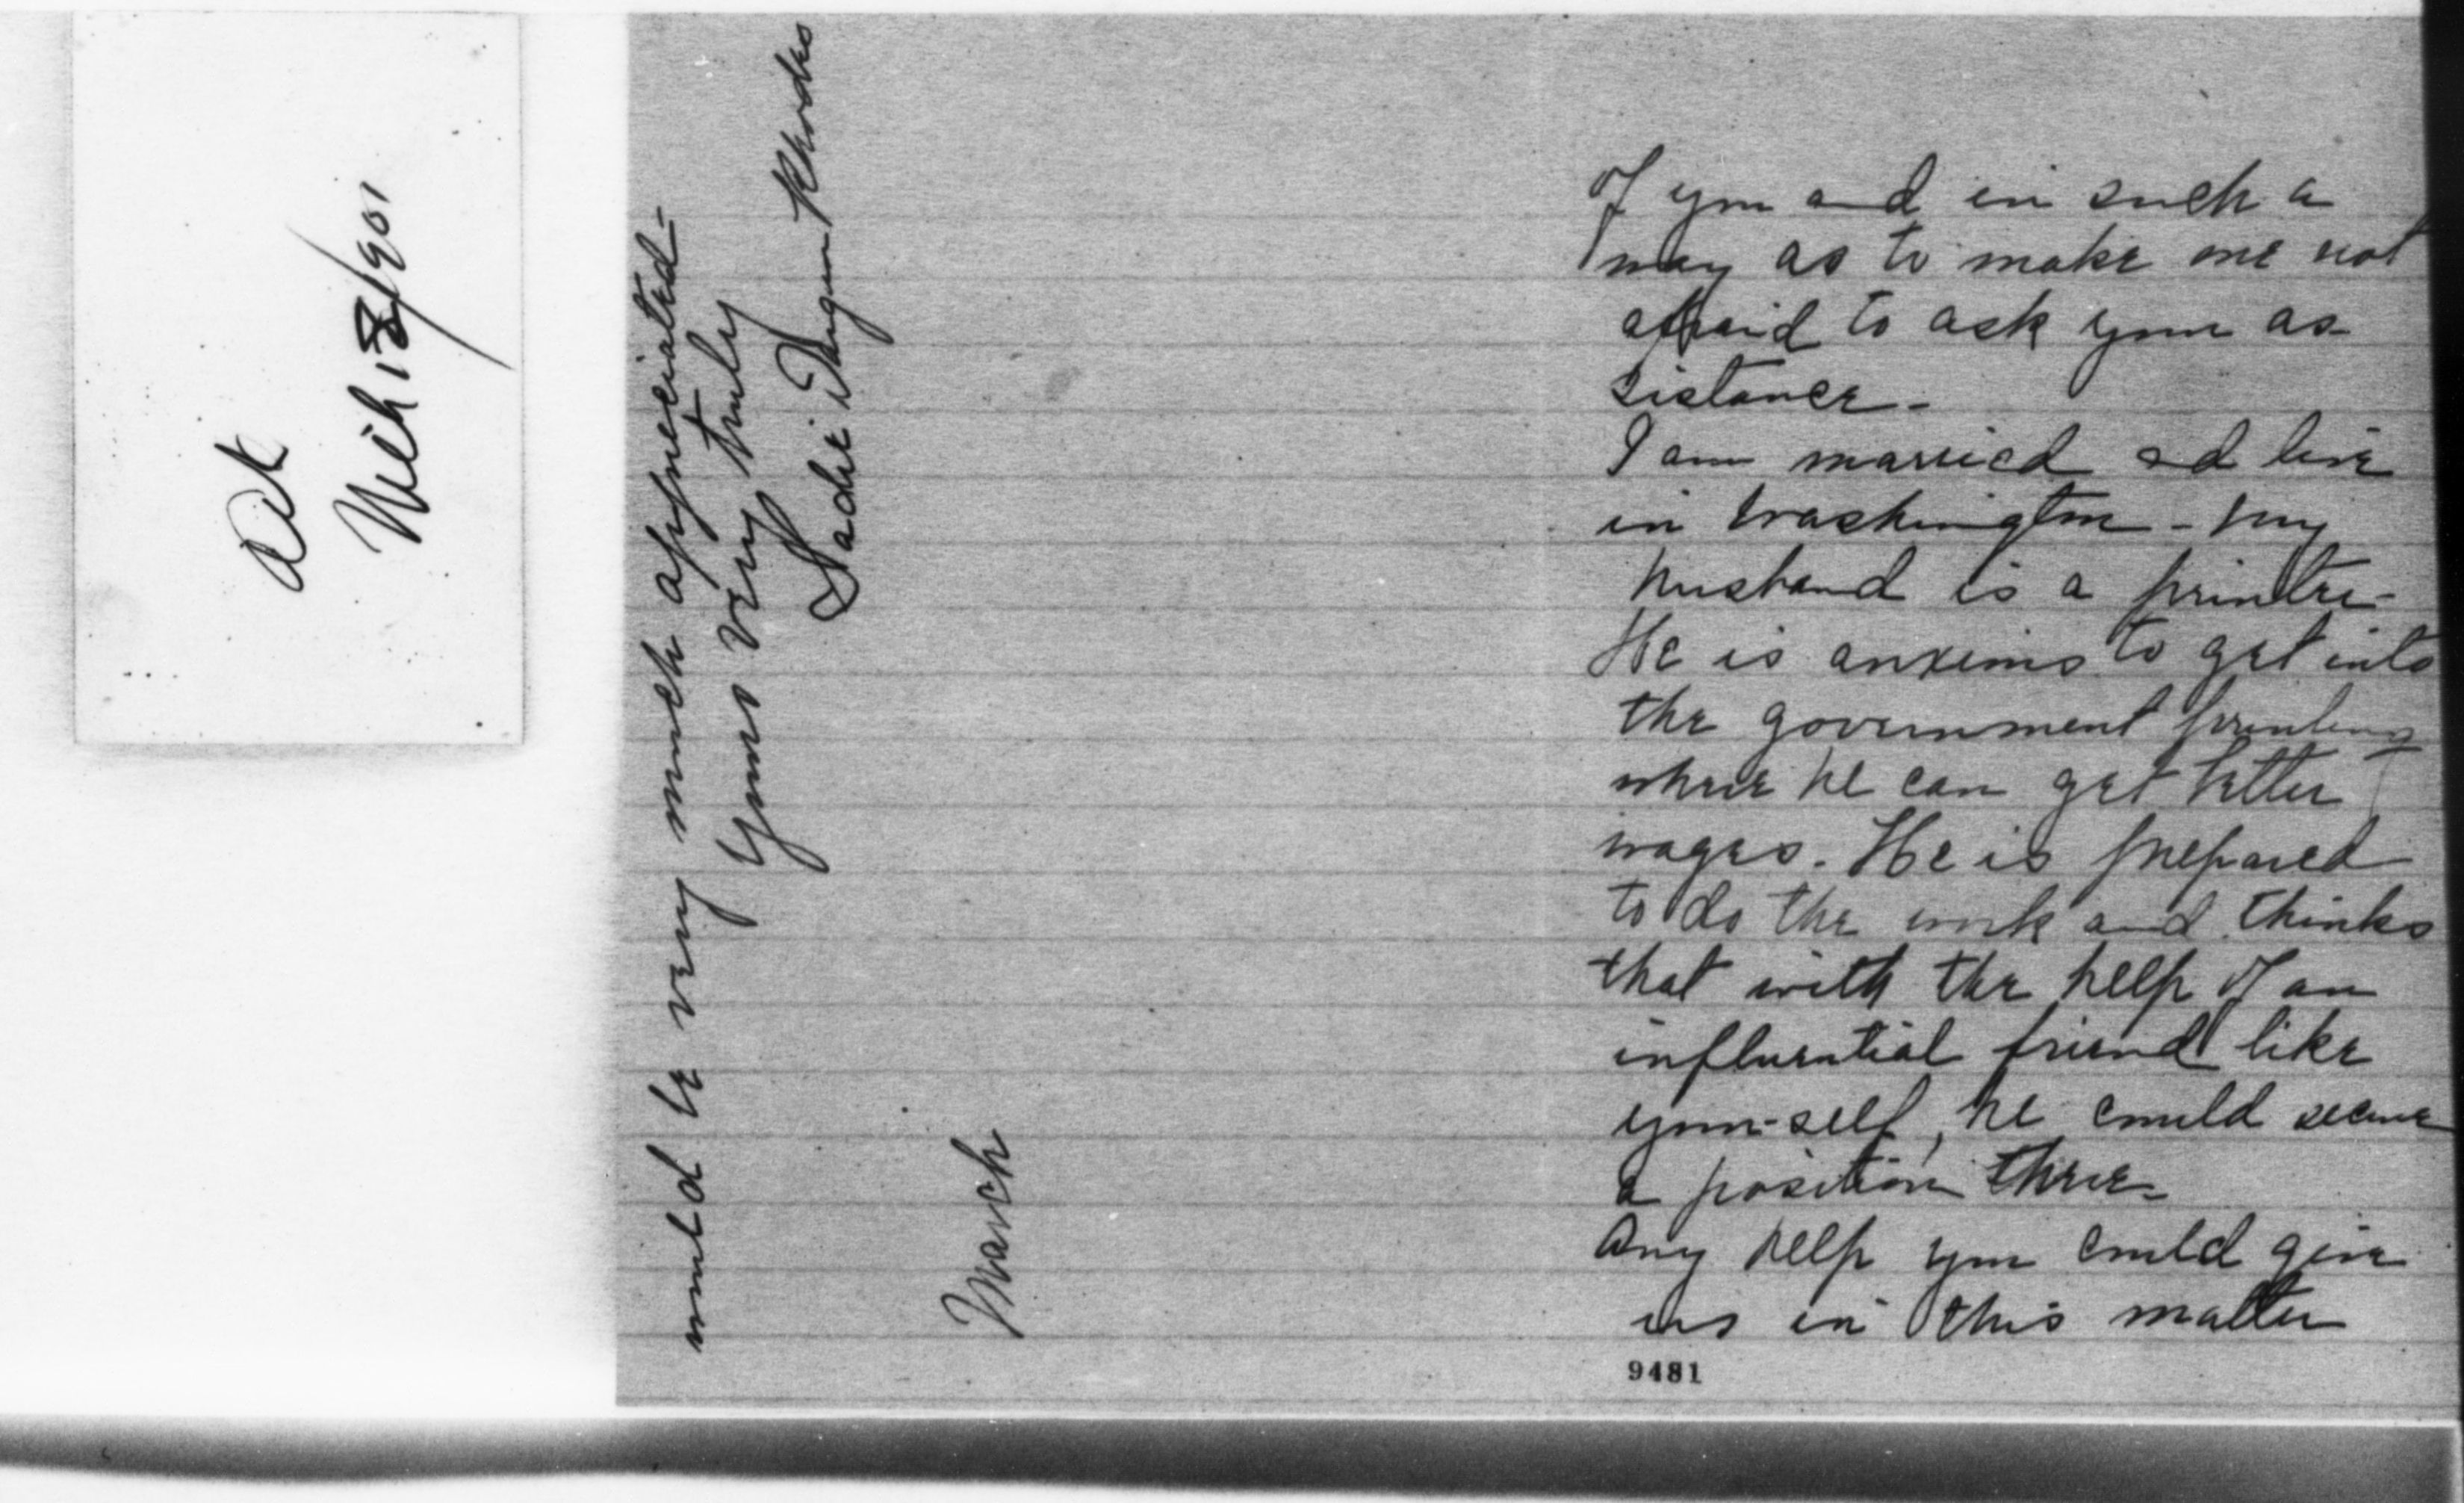 of you and in such a
way as to make me not
afraid to ask your as-
sistance -
I am married and live
in Washington - my
husband is a printer -
He is anxious to get into
the government printing
where he can get better
wages. He is prepared
to do the work and thinks
that with the help of an
influential friend like
your-self, he could secure
a position there -
Any help you could give
us in this matter
9481
would be very much appreciated -
Yours very truly
Sadie Rhodes
March
Ack
Mch 18/1901